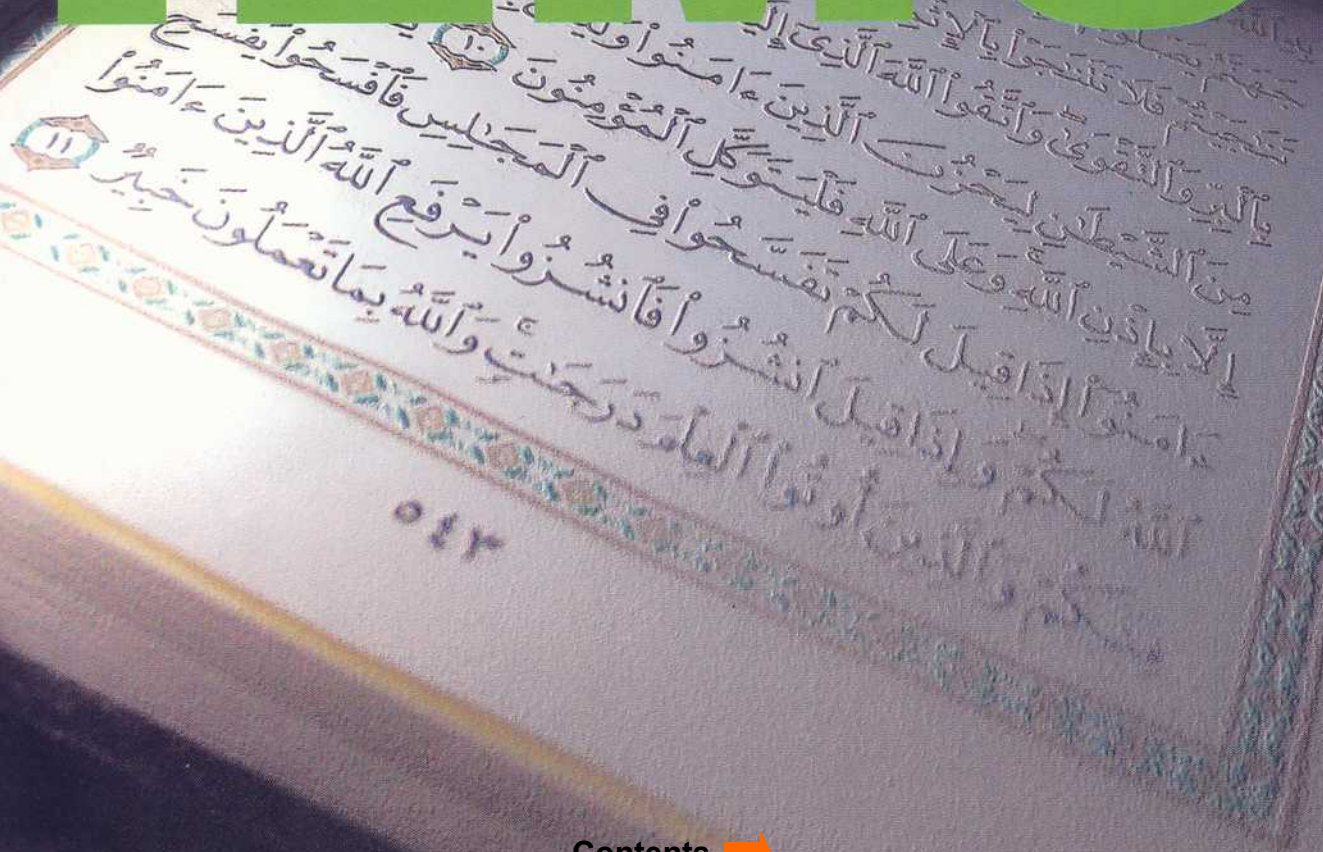 جَهَنَّمُ
تَنَٰجَيْتُمْ فَلَا تَتَنَٰجَوْا۟ بِٱلْإِثْ
بِٱلْبِرِّ وَٱلتَّقْوَىٰ وَٱتَّقُوا۟ ٱللَّهَ ٱلَّذِىٓ إِلَ
مِنَ ٱلشَّيْطَٰنِ لِيَحْزُنَ ٱلَّذِينَ ءَامَنُوا۟ وَلَيْ
إِلَّا بِإِذْنِ ٱللَّهِ وَعَلَى ٱللَّهِ فَلْيَتَوَكَّلِ ٱلْمُؤْمِنُونَ ١٠
ءَامَنُوٓا۟ إِذَا قِيلَ لَكُمْ تَفَسَّحُوا۟ فِى ٱلْمَجَٰلِسِ فَٱفْسَحُوا۟ يَفْسَحِ
ٱللَّهُ لَكُمْ وَإِذَا قِيلَ ٱنشُزُوا۟ فَٱنشُزُوا۟ يَرْفَعِ ٱللَّهُ ٱلَّذِينَ ءَامَنُوا۟
مِنكُمْ وَٱلَّذِينَ أُوتُوا۟ ٱلْعِلْمَ دَرَجَٰتٍ ۚ وَٱللَّهُ بِمَا تَعْمَلُونَ خَبِيرٌ ١١
٥٤٣
Contents